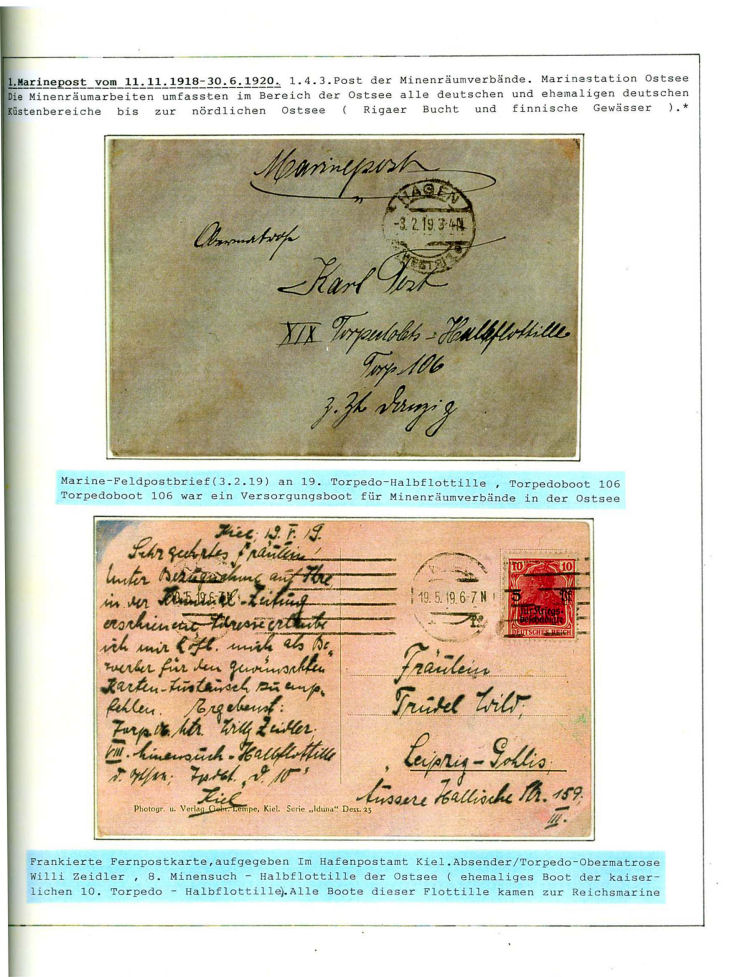 1.Marinepost vom 11.11.1918-30.6.1920. 1.4.3.Post der Minenräumverbände. Marinestation Ostsee
Die Minenräumarbeiten umfassten im Bereich der Ostsee alle deutschen und ehemaligen deutschen
Küstenbereiche bis zur nördlichen Ostsee ( Rigaer Bucht und finnische Gewässer ).*
Marinepost
HAGEN
-3.2.19.3-4N
(WESTF.)
Obermatrose
Karl Post
XIX Torpedobts-Halbflottille
Torp. 106
z. Zt. Danzig
Marine-Feldpostbrief(3.2.19) an 19. Torpedo-Halbflottille , Torpedoboot 106
Torpedoboot 106 war ein Versorgungsboot für Minenräumverbände in der Ostsee
Kiel, 19. V. 19.
Sehr geehrtes Fräulein!
Unter Bezugnahme auf Ihre
in der Zeitung
erschienene Adresse erlaube
ich mir höfl. mich als Be-
werber für den gewünschten
Karten-Austausch zu emp-
fehlen. Ergebenst:
Torp. Ob. Mtr. Willy Zeidler,
VIII. Minensuch-Halbflottille
d. Ostsee;
Kiel
19.5.19.6-7N
10 10
5 Pf
für Kriegs-
beschädigte
DEUTSCHES REICH
Fräulein
Trudel Wild,
Leipzig-Gohlis,
Äussere Hallische Str. 159.
III.
Photogr. u. Verlag Gebr. Lempe, Kiel. Serie „Iduna" Dess. 25
Frankierte Fernpostkarte,aufgegeben Im Hafenpostamt Kiel.Absender/Torpedo-Obermatrose
Willi Zeidler , 8. Minensuch - Halbflottille der Ostsee ( ehemaliges Boot der kaiser-
lichen 10. Torpedo - Halbflottille).Alle Boote dieser Flottille kamen zur Reichsmarine